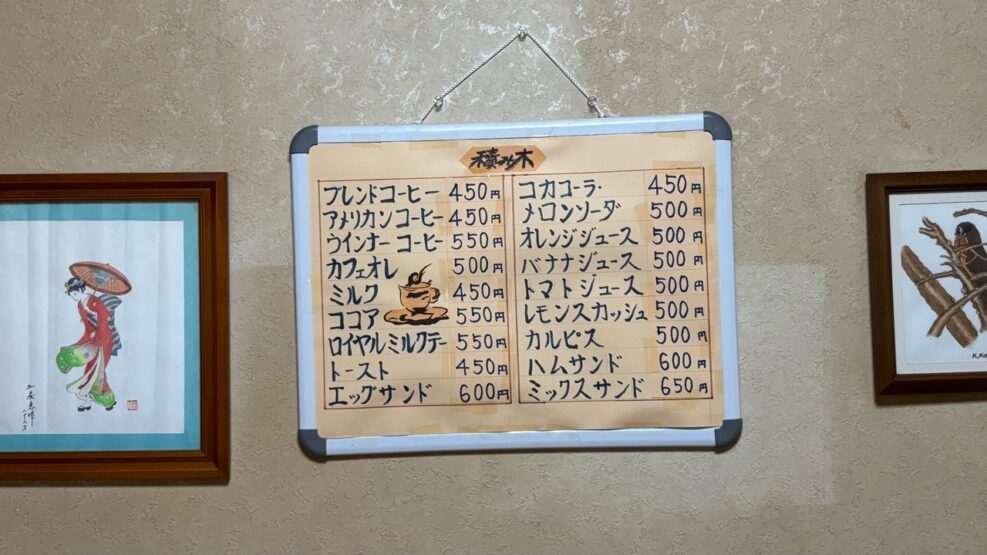 積み木
ブレンドコーヒー 450円
アメリカンコーヒー 450円
ウインナーコーヒー 550円
カフェオレ 500円
ミルク 450円
ココア 550円
ロイヤルミルクテー 550円
トースト 450円
エッグサンド 600円
コカコーラ 450円
メロンソーダ 500円
オレンジジュース 500円
バナナジュース 500円
トマトジュース 500円
レモンスカッシュ 500円
カルピス 500円
ハムサンド 600円
ミックスサンド 650円